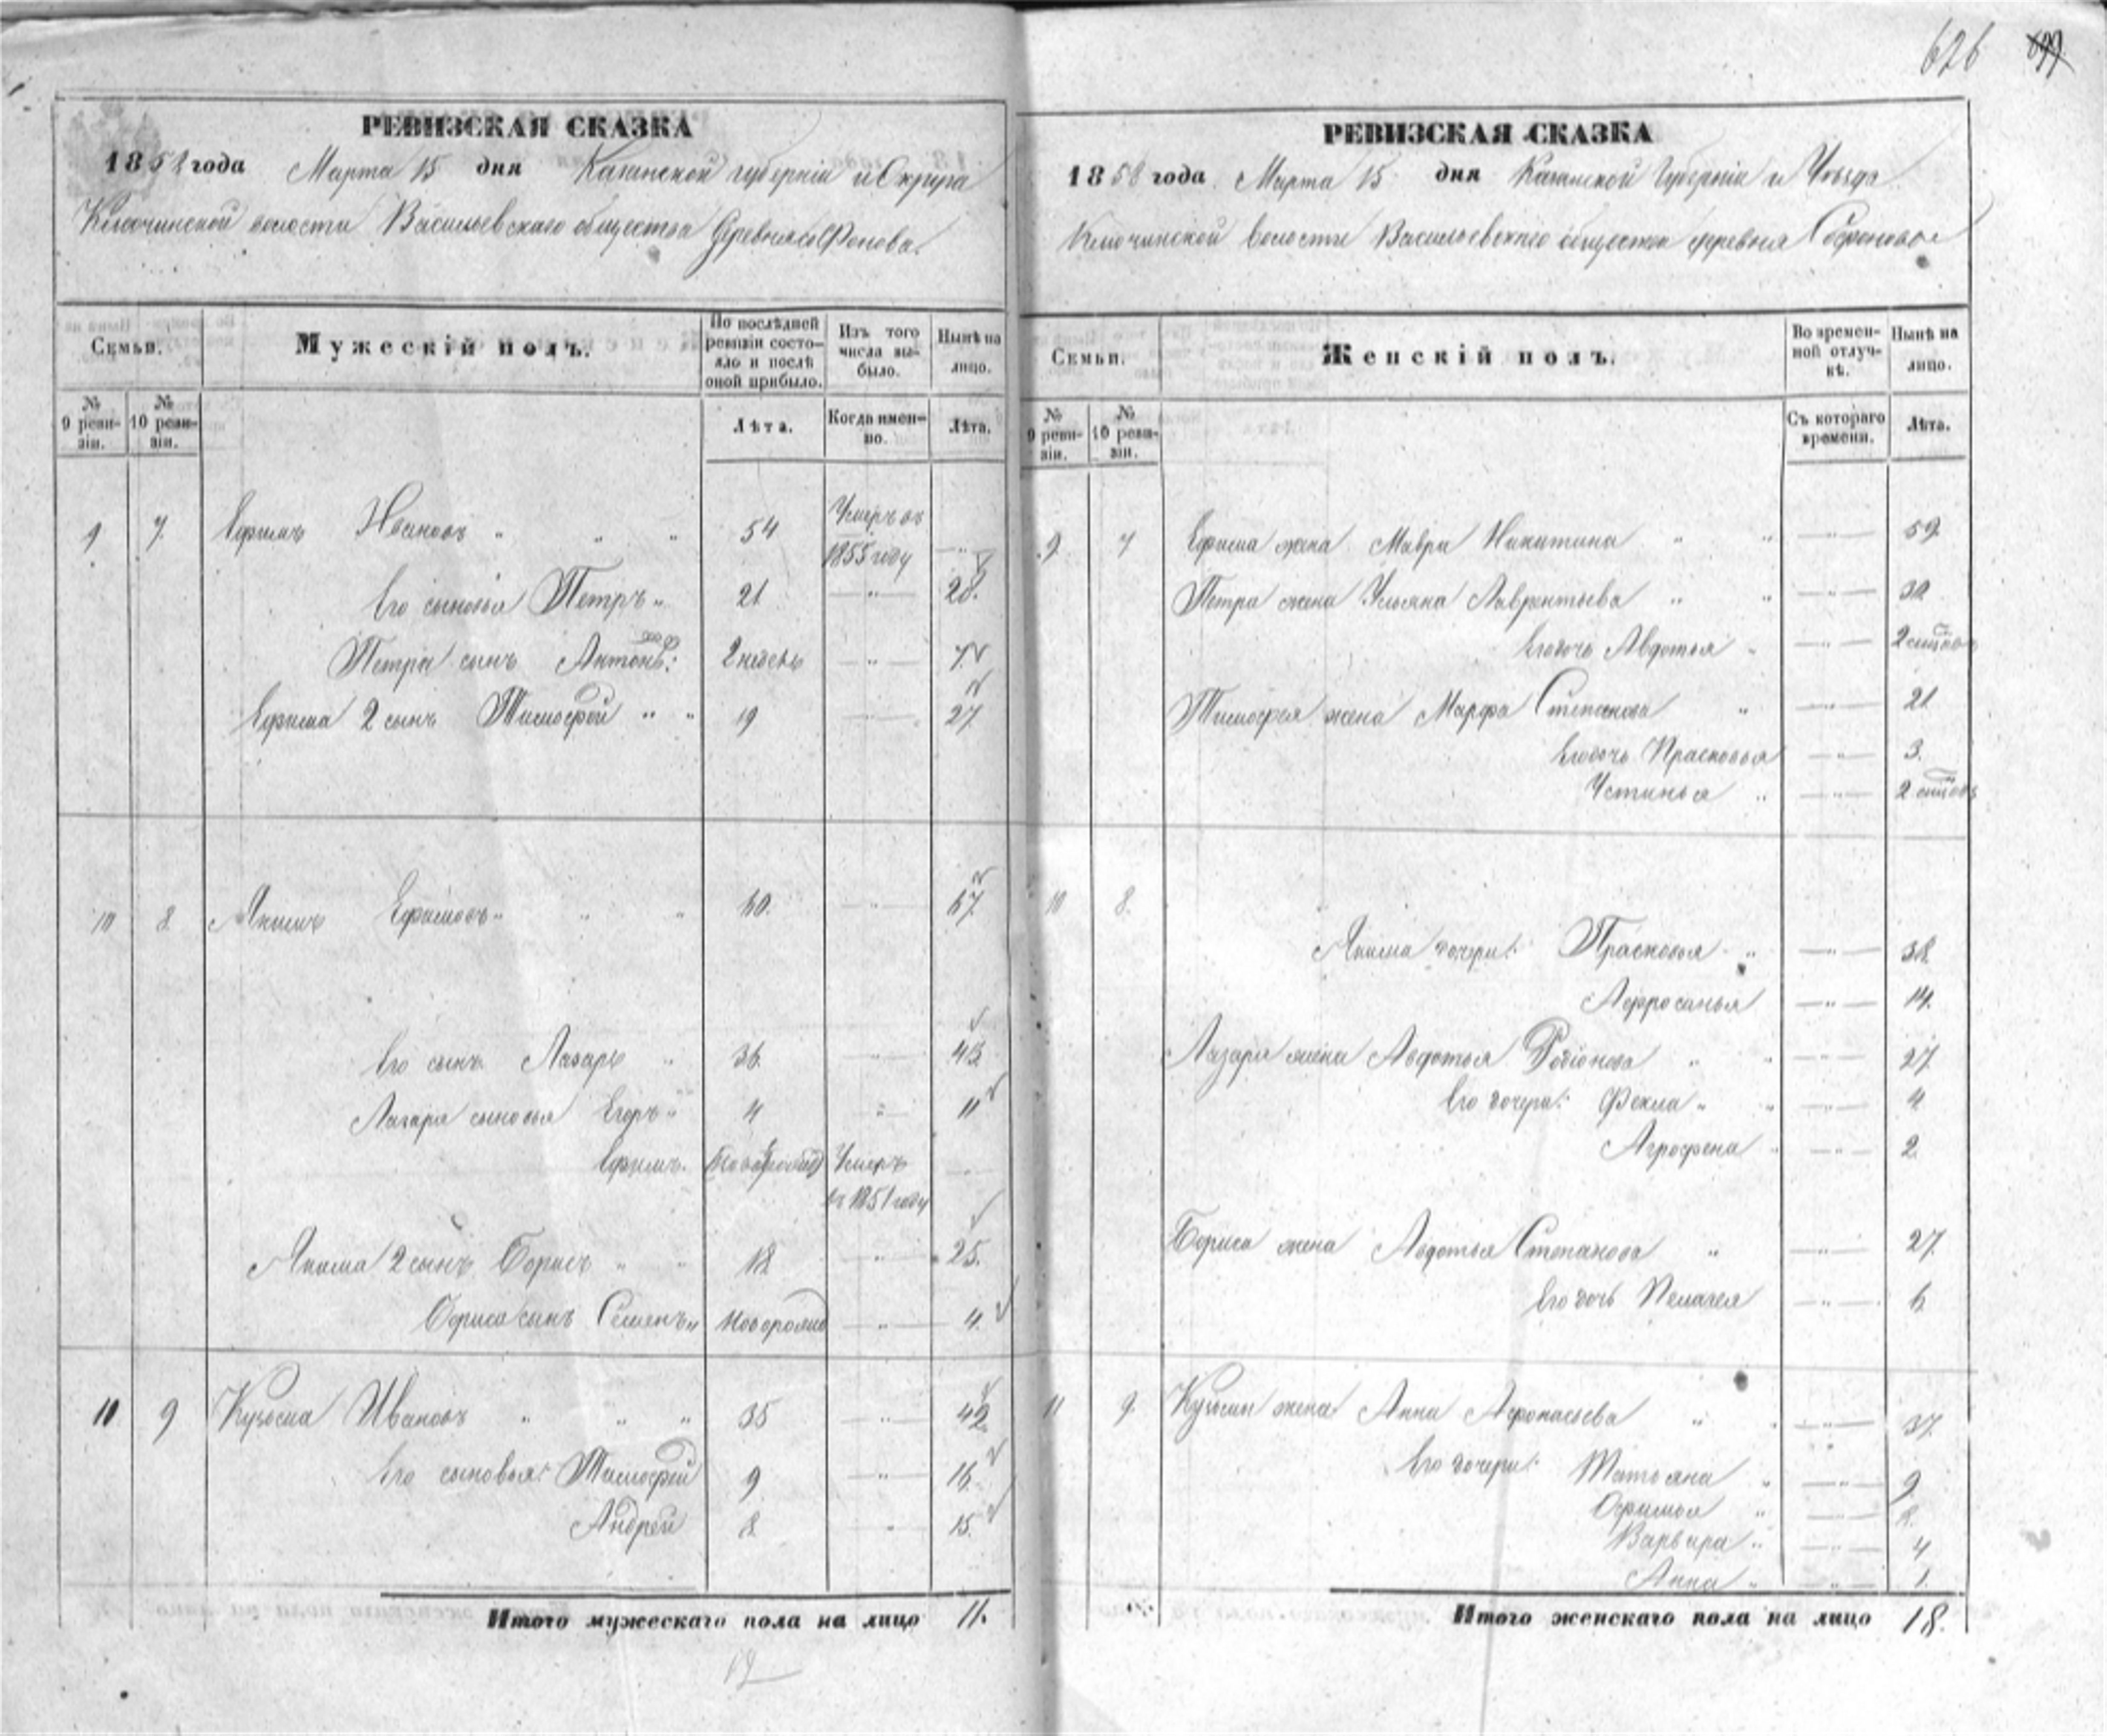 626
РЕВИЗСКАЯ СКАЗКА
1858 года Марта 15 дня Казанской губерніи и Округа
Ключинской волости Васильевскаго общества Деревня Софонова.
Семьи.
Мужескій полъ.
По послѣдней ревизіи состояло и послѣ оной прибыло.
Изъ того числа выбыло.
Нынѣ на лицо.
№ 9 ревизіи.
№ 10 ревизіи.
Лѣта.
Когда именно.
Лѣта.
9 7. Ефимъ Ивановъ " " " 54 Умеръ въ 1855 году "
Его сыновья Петръ " 21 " 28.
Петра сынъ Антонъ: 2 недель " 7
Ефима 2 сынъ Тимофей " " 19 " 27
10 8 Якимъ Ефимовъ " " " 60. " 67.
Его сынъ Лазарь " 36. " 43.
Лазаря сыновья Егоръ " 4 " 11
Ефимъ. Новорожд Умеръ въ 1851 году
Якима 2 сынъ Борисъ " " 18 " 25.
Бориса сынъ Семенъ " Новорожд " 4.
11 9 Кузьма Ивановъ " " " 35 " 42
Его сыновья: Тимофей 9 " 16.
Андрей 8. " 15.
Итого мужескаго пола на лицо 11.
РЕВИЗСКАЯ СКАЗКА
1858 года Марта 15 дня Казанской Губерніи и Уѣзда
Ключинской волости Васильевскаго общества деревня Софонова
Семьи.
Женскій полъ.
Во временной отлучкѣ.
Нынѣ на лицо.
№ 9 ревизіи.
№ 10 ревизіи.
Съ котораго времени.
Лѣта.
9. 7 Ефима жена Мавра Никитина " " " 59.
Петра жена Ульяна Лаврентьева " " " 30
Его дочь Авдотья " " 2
Тимофея жена Марфа Степанова " " 21
Его дочь Прасковья " 3.
Устинья " " 2
10 8.
Якима дочери: Прасковья " " 38
Афросанья " 14.
Лазаря жена Авдотья Родіонова " " " 27
Его дочери: Фекла " " " 4
Агрофена " " 2
Бориса жена Авдотья Степанова " " 27.
Его дочь Пелагея " 6
11 9. Кузмы жена Анна Афонасьева " " " 37.
Его дочери: Татьяна " " 9.
Офимья " "
Варвара " " 4
Анна " " 1.
Итого женскаго пола на лицо 18.